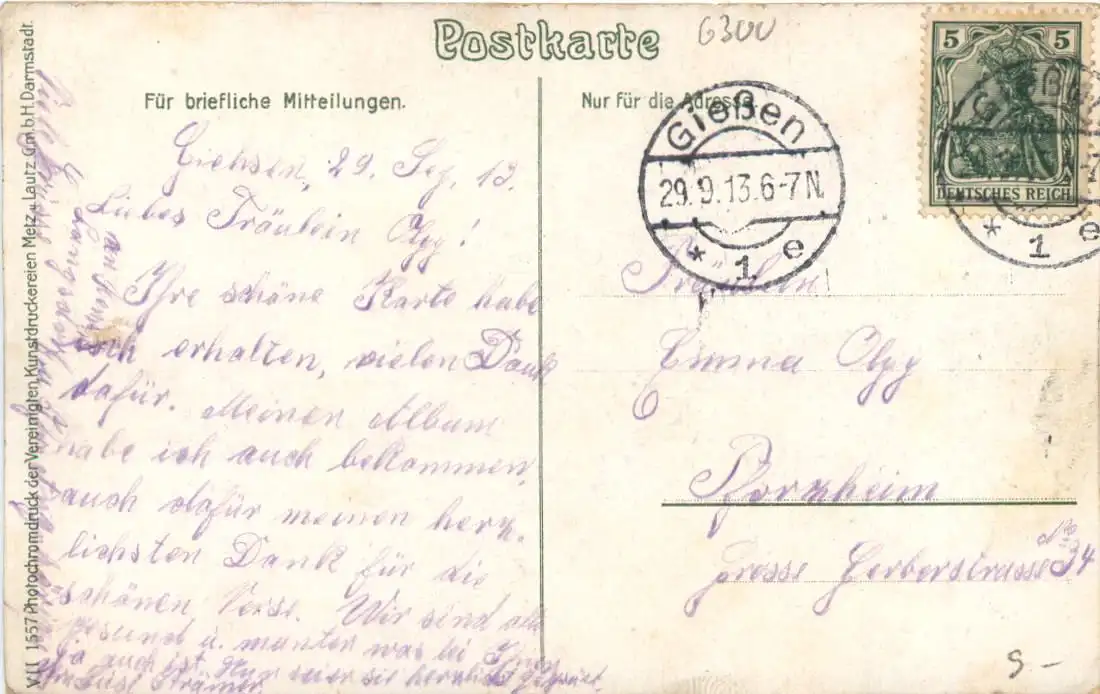 Postkarte
6300
Für briefliche Mitteilungen.
Nur für die Adresse.
5 5
DEUTSCHES REICH
Gießen
29.9.13.6-7N.
* 1 e
* 1 e
Giehsen, 29. Sep. 13.
Liebes Fräulein Olpp!
Ihre schöne Karte habe
ich erhalten, vielen Dank
dafür. Meinen Album
habe ich auch bekommen,
auch dafür meinen herz-
lichsten Dank für die
schönen Verse. Wir sind alle
gesund u. munter was bei Ihnen
ja auch ist. Nun seien sie herzlich gegrüsst
Fräulein
Emma Olpp
Pforzheim
Grosse Gerberstrasse 34
VII 1557 Photochromdruck der Vereinigten Kunstdruckereien Metz u. Lautz G.m.b.H. Darmstadt.